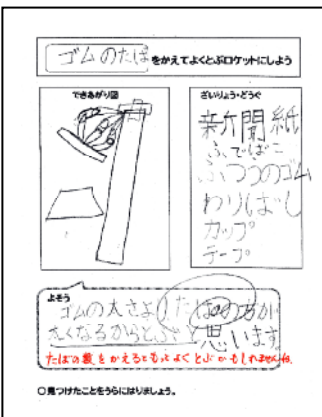 ゴムのたばをかえてよくとぶロケットにしよう
できあがり図
ざいりょう・どうぐ
新聞紙
ふでばこ
ふつうのゴム
わりばし
カップ
テープ
よそう
ゴムの太さよりたばの方が
太くなるからとぶと思います。
たばの数をかえるともっとよくとぶかもしれませんね。
○見つけたことをうらにはりましょう。